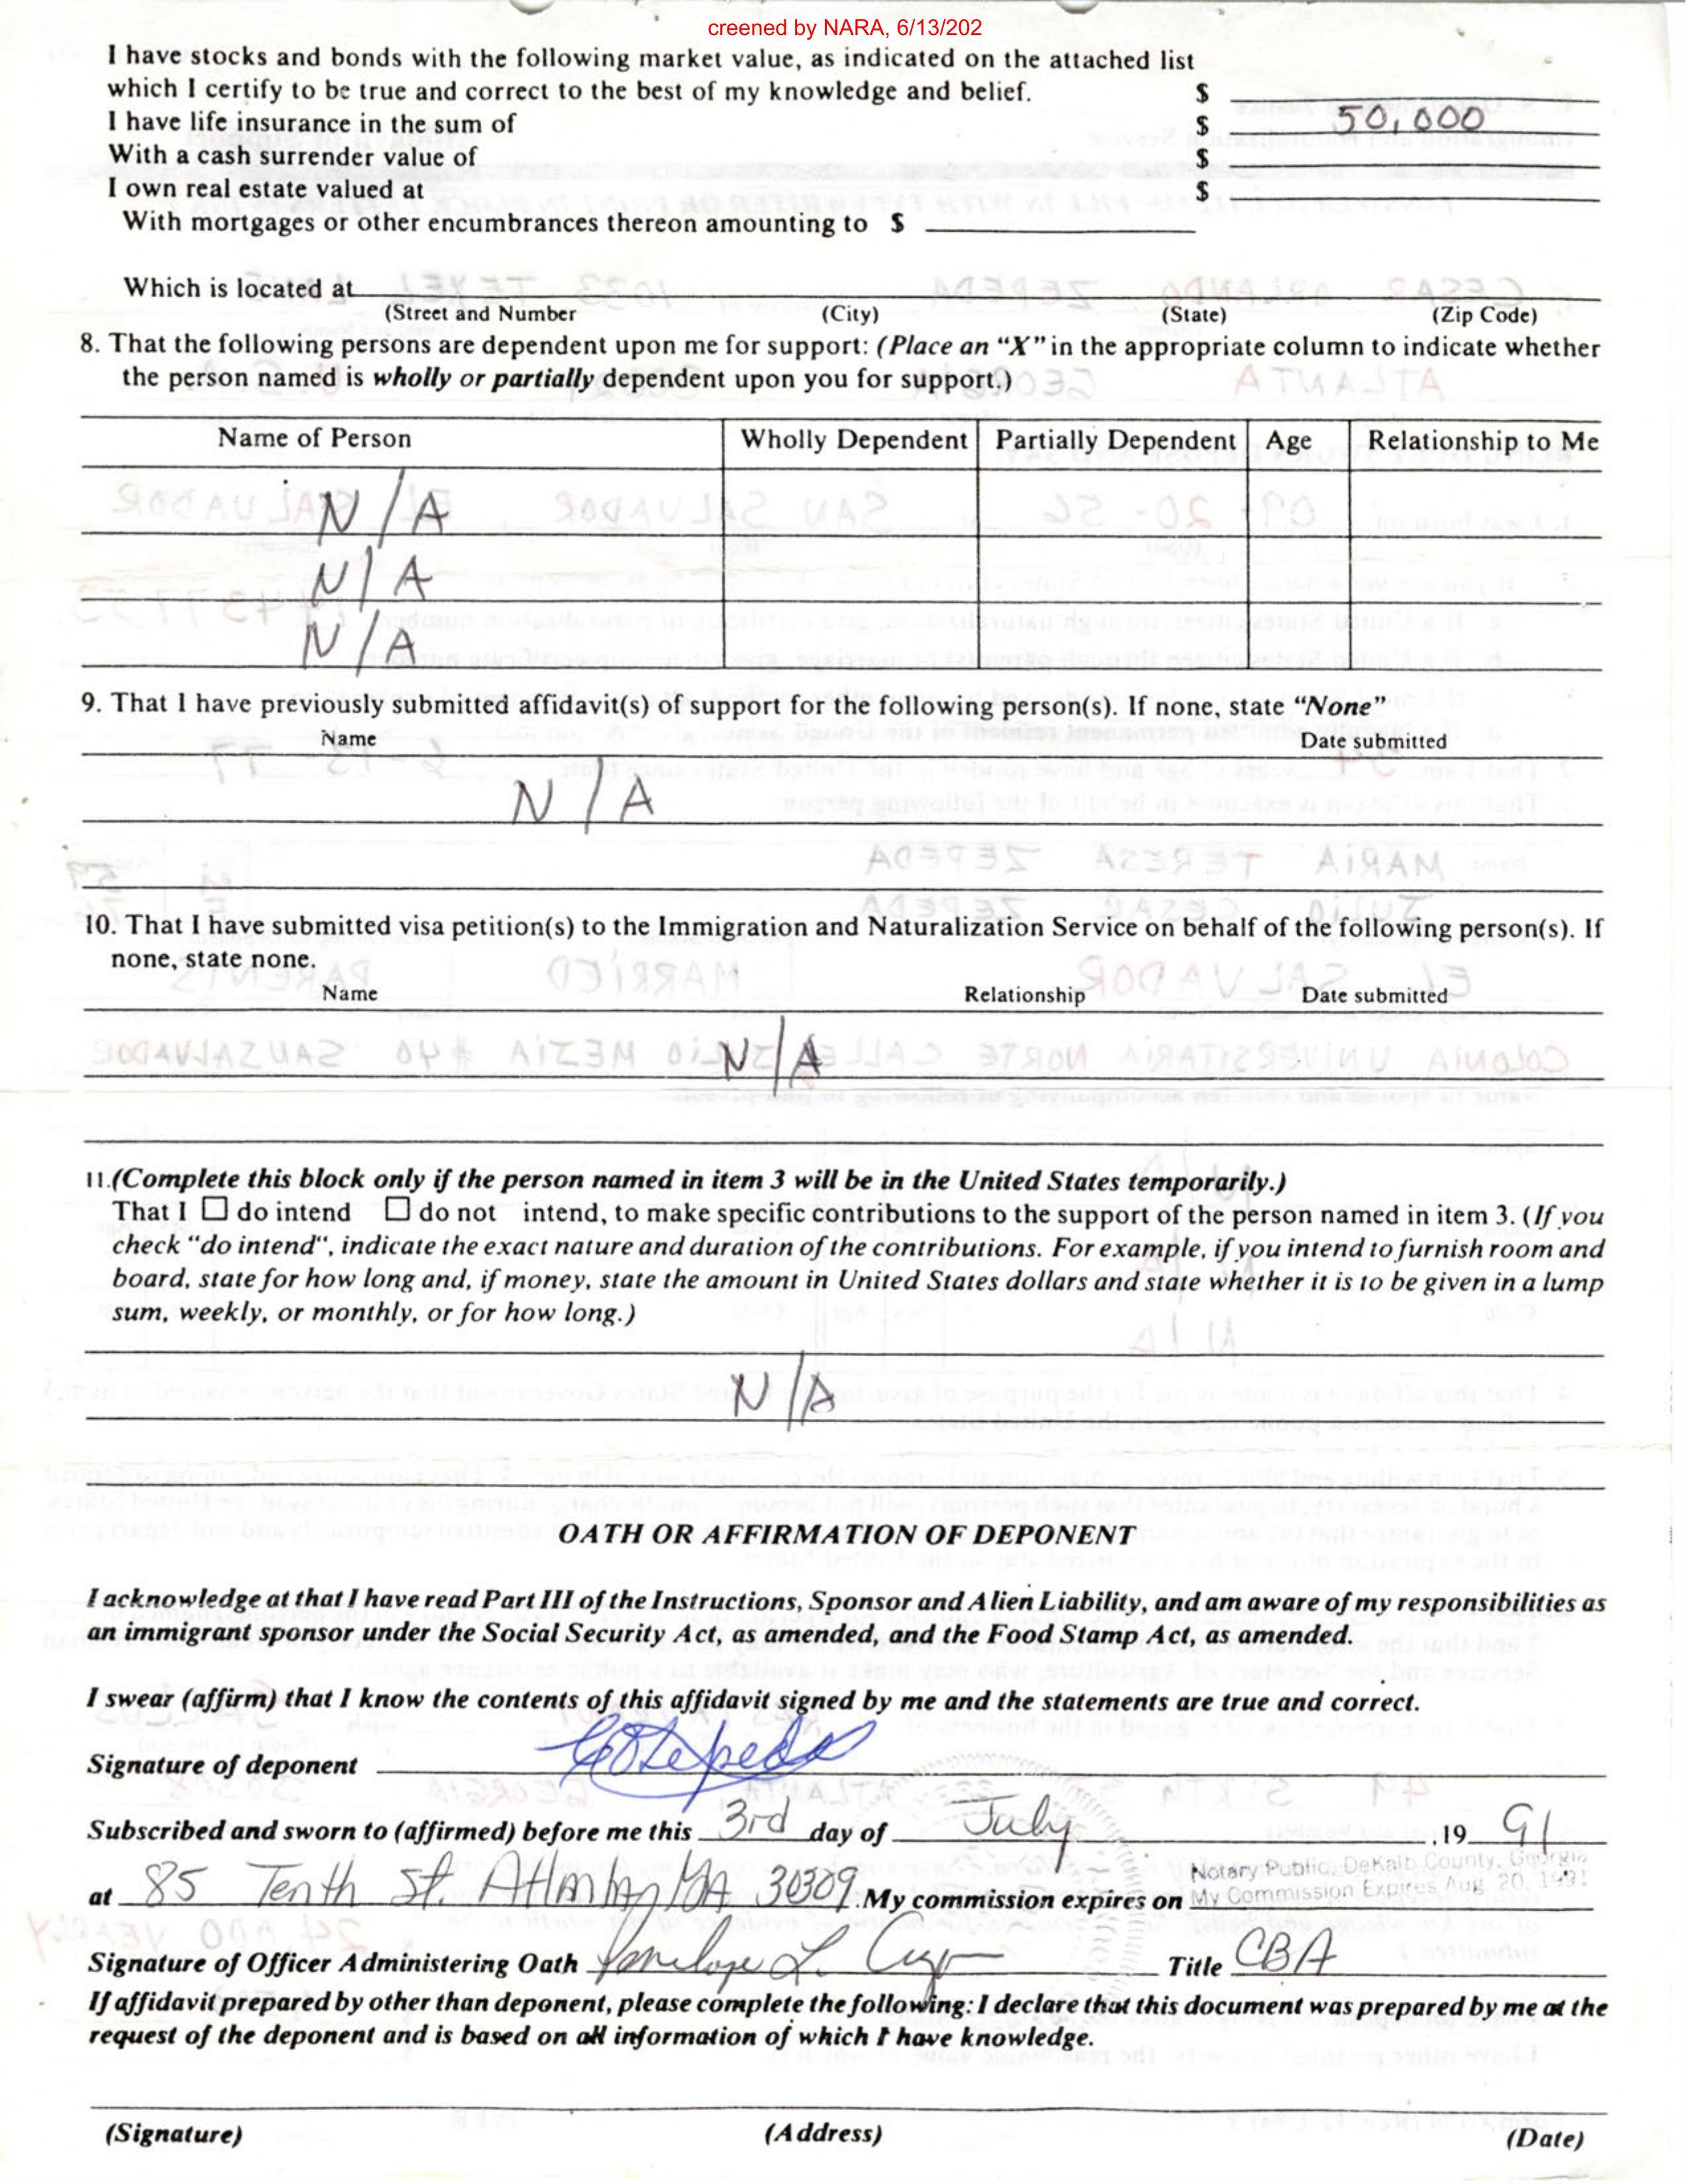 creened by NARA, 6/13/202
I have stocks and bonds with the following market value, as indicated on the attached list
which I certify to be true and correct to the best of my knowledge and belief. $
I have life insurance in the sum of $ 50,000
With a cash surrender value of $
I own real estate valued at $
With mortgages or other encumbrances thereon amounting to $
Which is located at
(Street and Number (City) (State) (Zip Code)
8. That the following persons are dependent upon me for support: (Place an “X” in the appropriate column to indicate whether
the person named is wholly or partially dependent upon you for support.)
Name of Person Wholly Dependent Partially Dependent Age Relationship to Me
N/A
N/A
N/A
9. That I have previously submitted affidavit(s) of support for the following person(s). If none, state “None”
Name Date submitted
N/A
10. That I have submitted visa petition(s) to the Immigration and Naturalization Service on behalf of the following person(s). If
none, state none.
Name Relationship Date submitted
N/A
11.(Complete this block only if the person named in item 3 will be in the United States temporarily.)
That I ☐ do intend ☐ do not intend, to make specific contributions to the support of the person named in item 3. (If you
check “do intend“, indicate the exact nature and duration of the contributions. For example, if you intend to furnish room and
board, state for how long and, if money, state the amount in United States dollars and state whether it is to be given in a lump
sum, weekly, or monthly, or for how long.)
N/A
OATH OR AFFIRMATION OF DEPONENT
I acknowledge at that I have read Part III of the Instructions, Sponsor and Alien Liability, and am aware of my responsibilities as
an immigrant sponsor under the Social Security Act, as amended, and the Food Stamp Act, as amended.
I swear (affirm) that I know the contents of this affidavit signed by me and the statements are true and correct.
Signature of deponent
Subscribed and sworn to (affirmed) before me this 3rd day of July ,19 91
Notary Public, DeKalb County, Georgia
at 85 Tenth St. Atlanta, GA 30309. My commission expires on My Commission Expires Aug. 20, 1991
Signature of Officer Administering Oath Penelope L. Title CBA
If affidavit prepared by other than deponent, please complete the following: I declare that this document was prepared by me at the
request of the deponent and is based on all information of which I have knowledge.
(Signature) (Address) (Date)